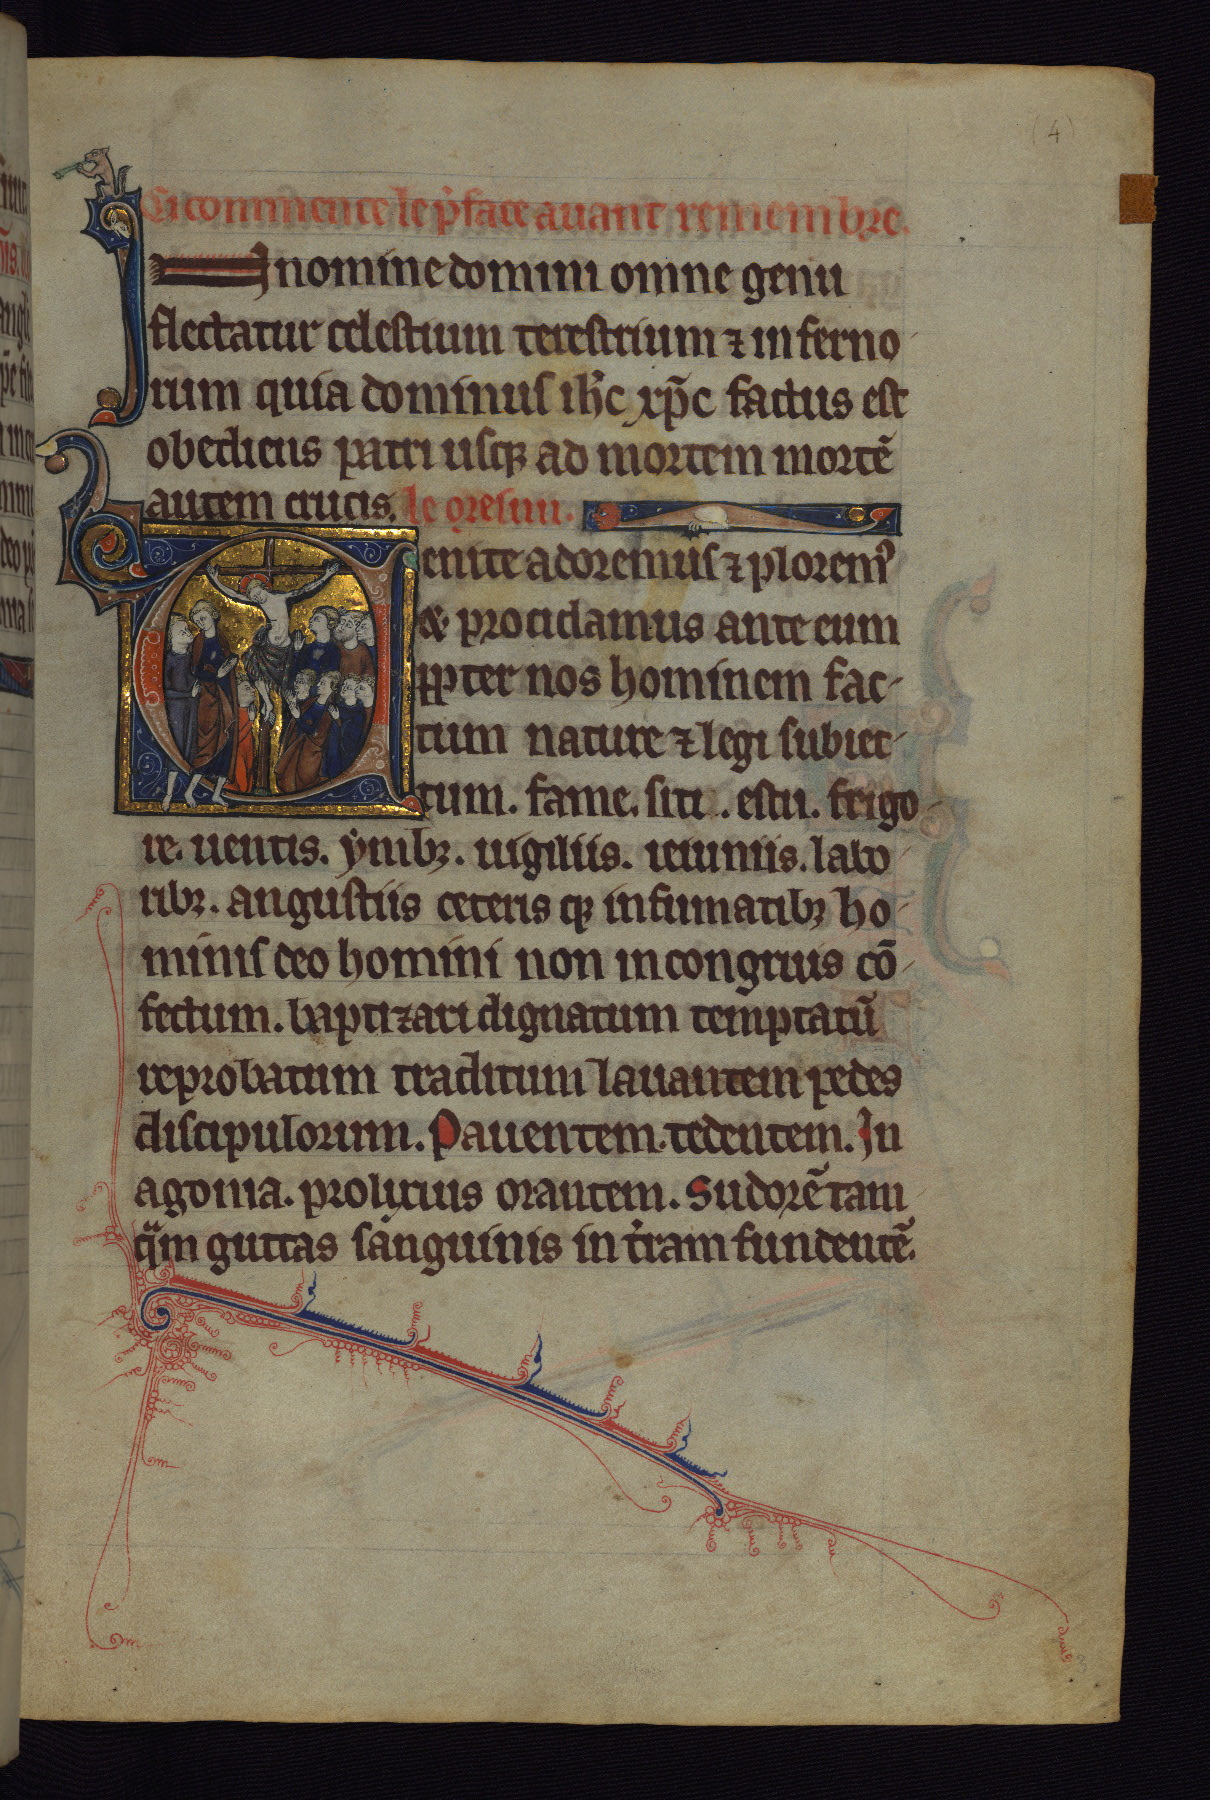 (4)
Ci commence le p̉face avant remembre.
In nomine domini omne genu
flectatur celestium terestrium ⁊ inferno
rum quia dominus ih̄c xp̄c factus est
obediens patri usqꝫ ad mortem mortē
autem crucis. le oresun.
Uenite adoremus ⁊ plorem᾿
& procidamus ante eum
ꝓpter nos hominem fac-
tum nature ⁊ legi subiec-
tum. fame. siti. estu. frigo-
re. uentis. ymbꝫ. uigiliis. ieiuniis. labo
ribꝫ. angustiis ceteris qꝫ infirmatibꝫ ho-
minis deo homini non incongruis cō
fectum. baptizari dignatum temptatū
reprobatum traditum lauantem pedes
discipulorum. Pauentem. tedentem. In
agonia. prolixius orantem. Sudorē tam
qͣm guttas sanguinis in t̉ram fundentē.